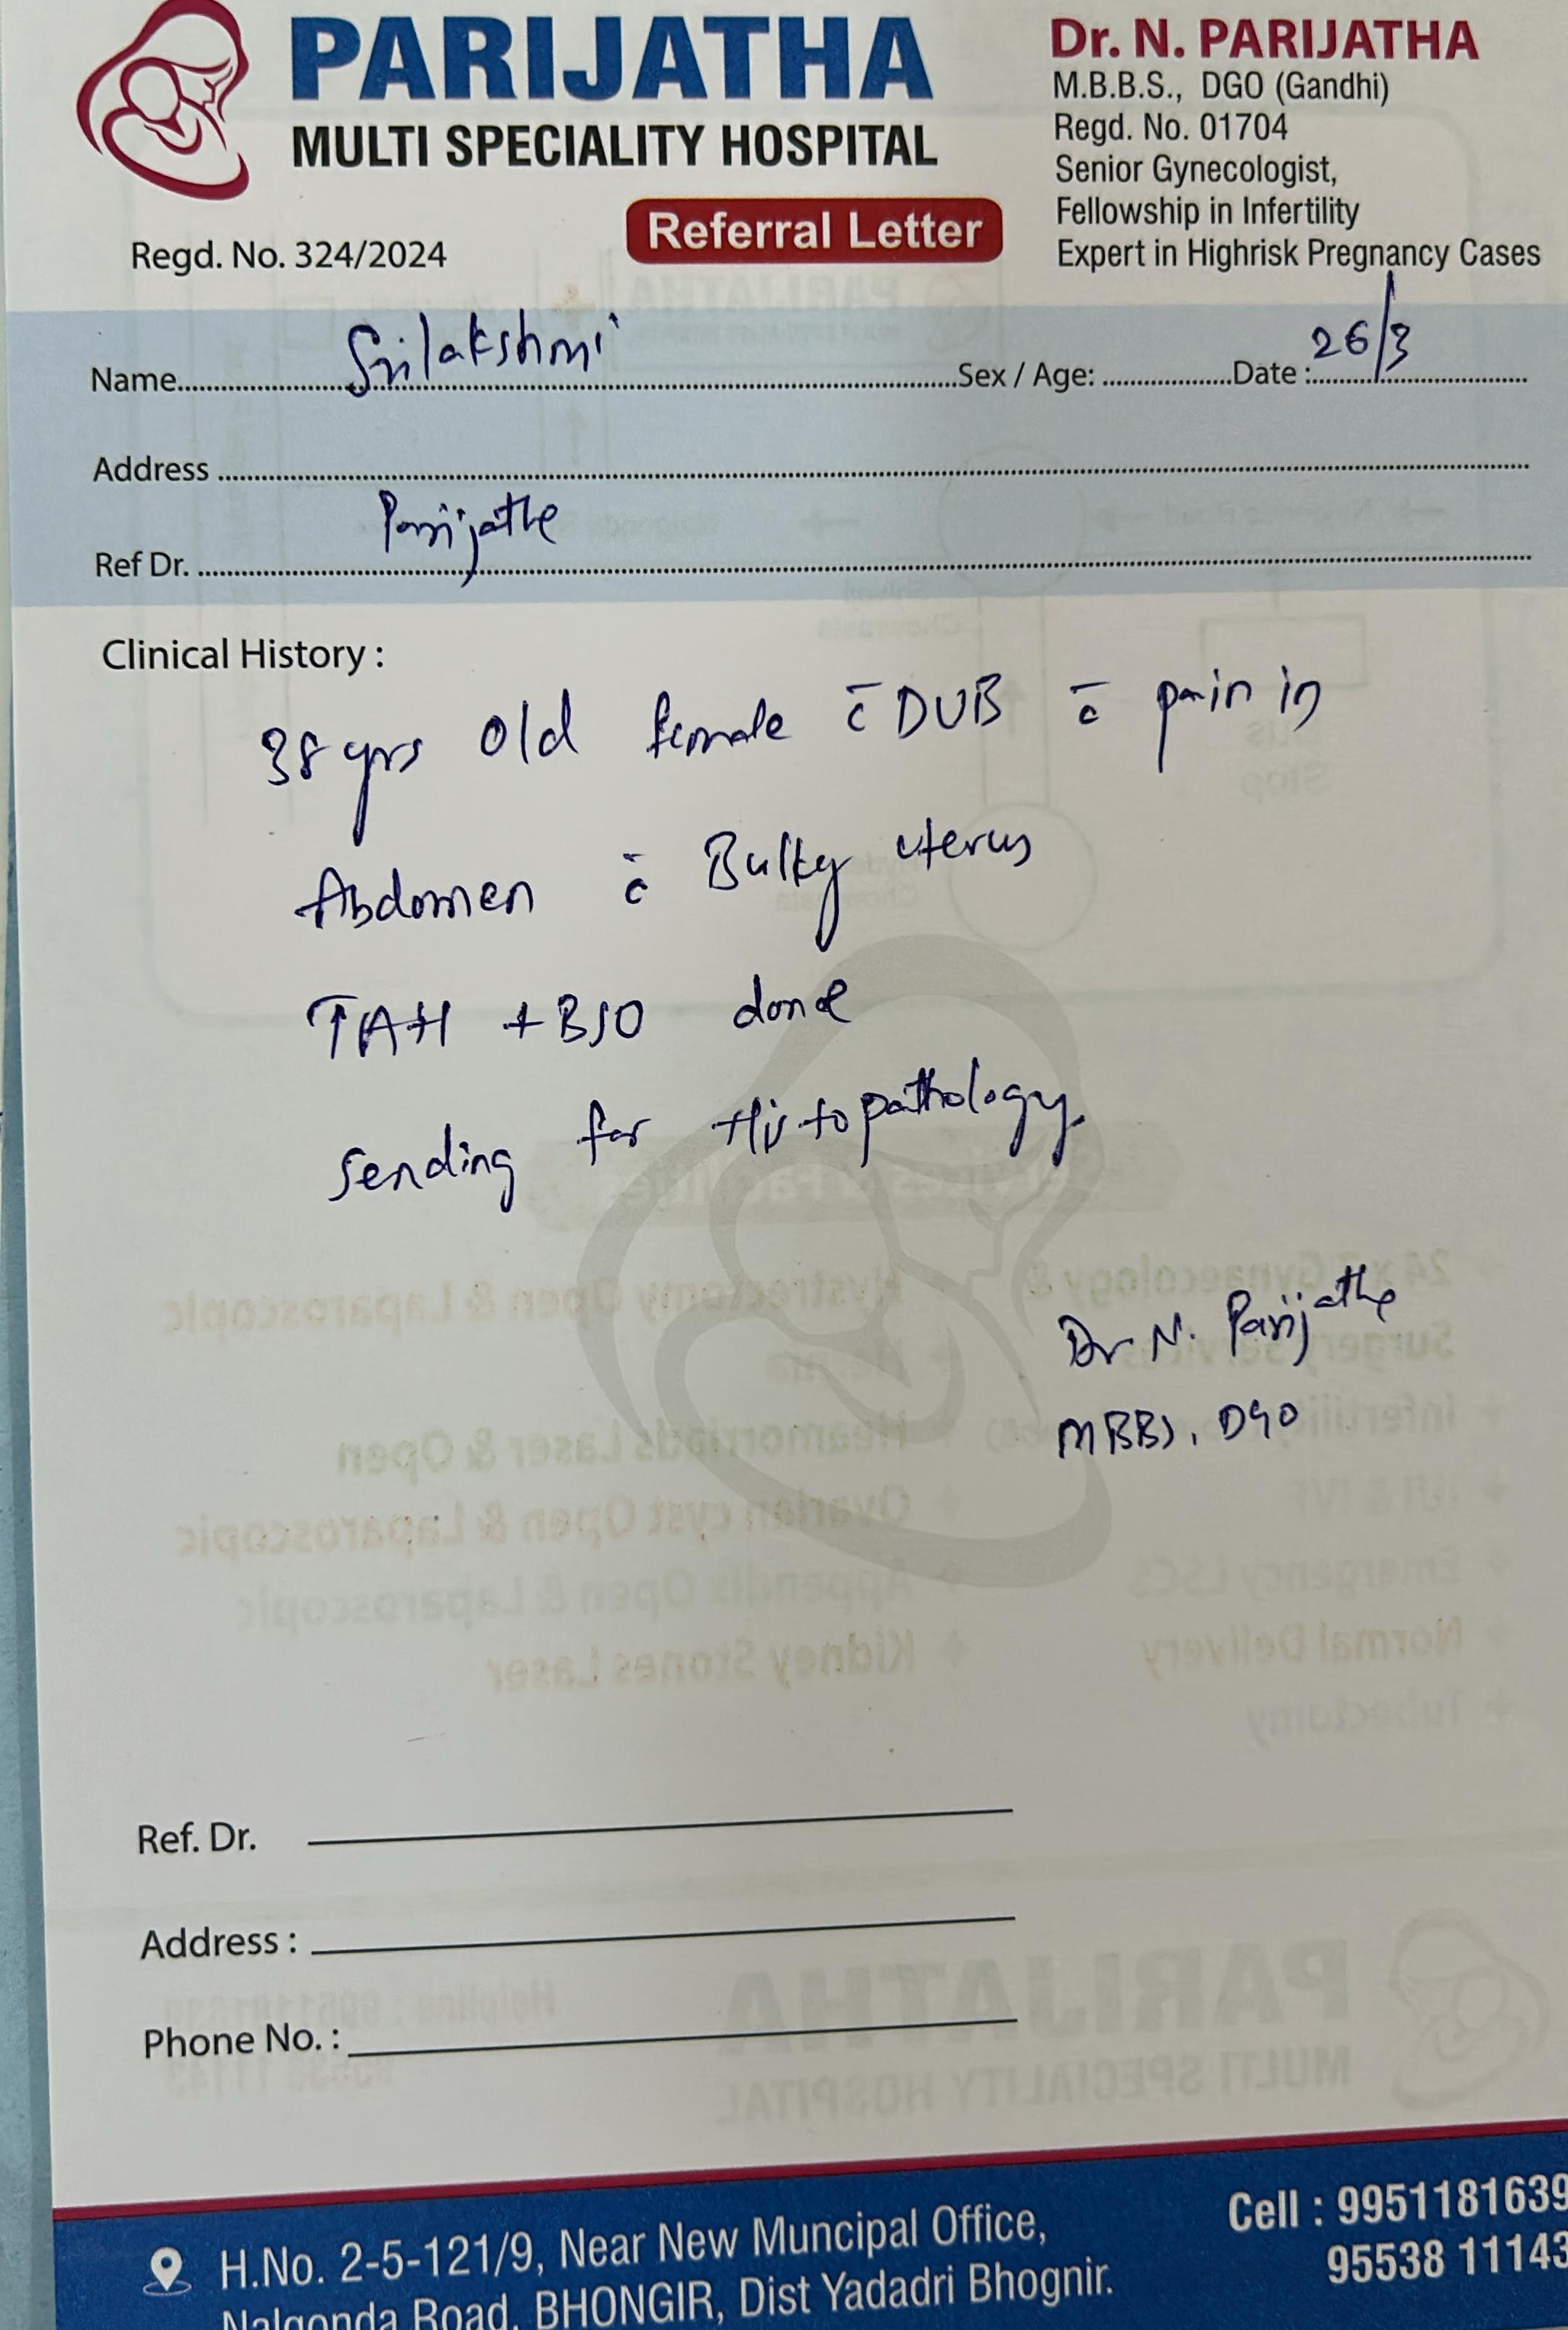 PARIJATHA
MULTI SPECIALITY HOSPITAL
Regd. No. 324/2024
Referral Letter
Dr. N. PARIJATHA
M.B.B.S., DGO (Gandhi)
Regd. No. 01704
Senior Gynecologist,
Fellowship in Infertility
Expert in Highrisk Pregnancy Cases
Name Srilakshmi Sex / Age: Date : 26/3
Address
Ref Dr. Parijatha
Clinical History :
38 yrs old female c̄ DUB c̄ pain in
Abdomen c̄ Bulky uterus
TAH + BSO done
sending for Histopathology
Dr N. Parijatha
MBBS, DGO
Ref. Dr.
Address :
Phone No. :
H.No. 2-5-121/9, Near New Muncipal Office,
Nalgonda Road, BHONGIR, Dist Yadadri Bhognir.
Cell : 9951181639
95538 11143